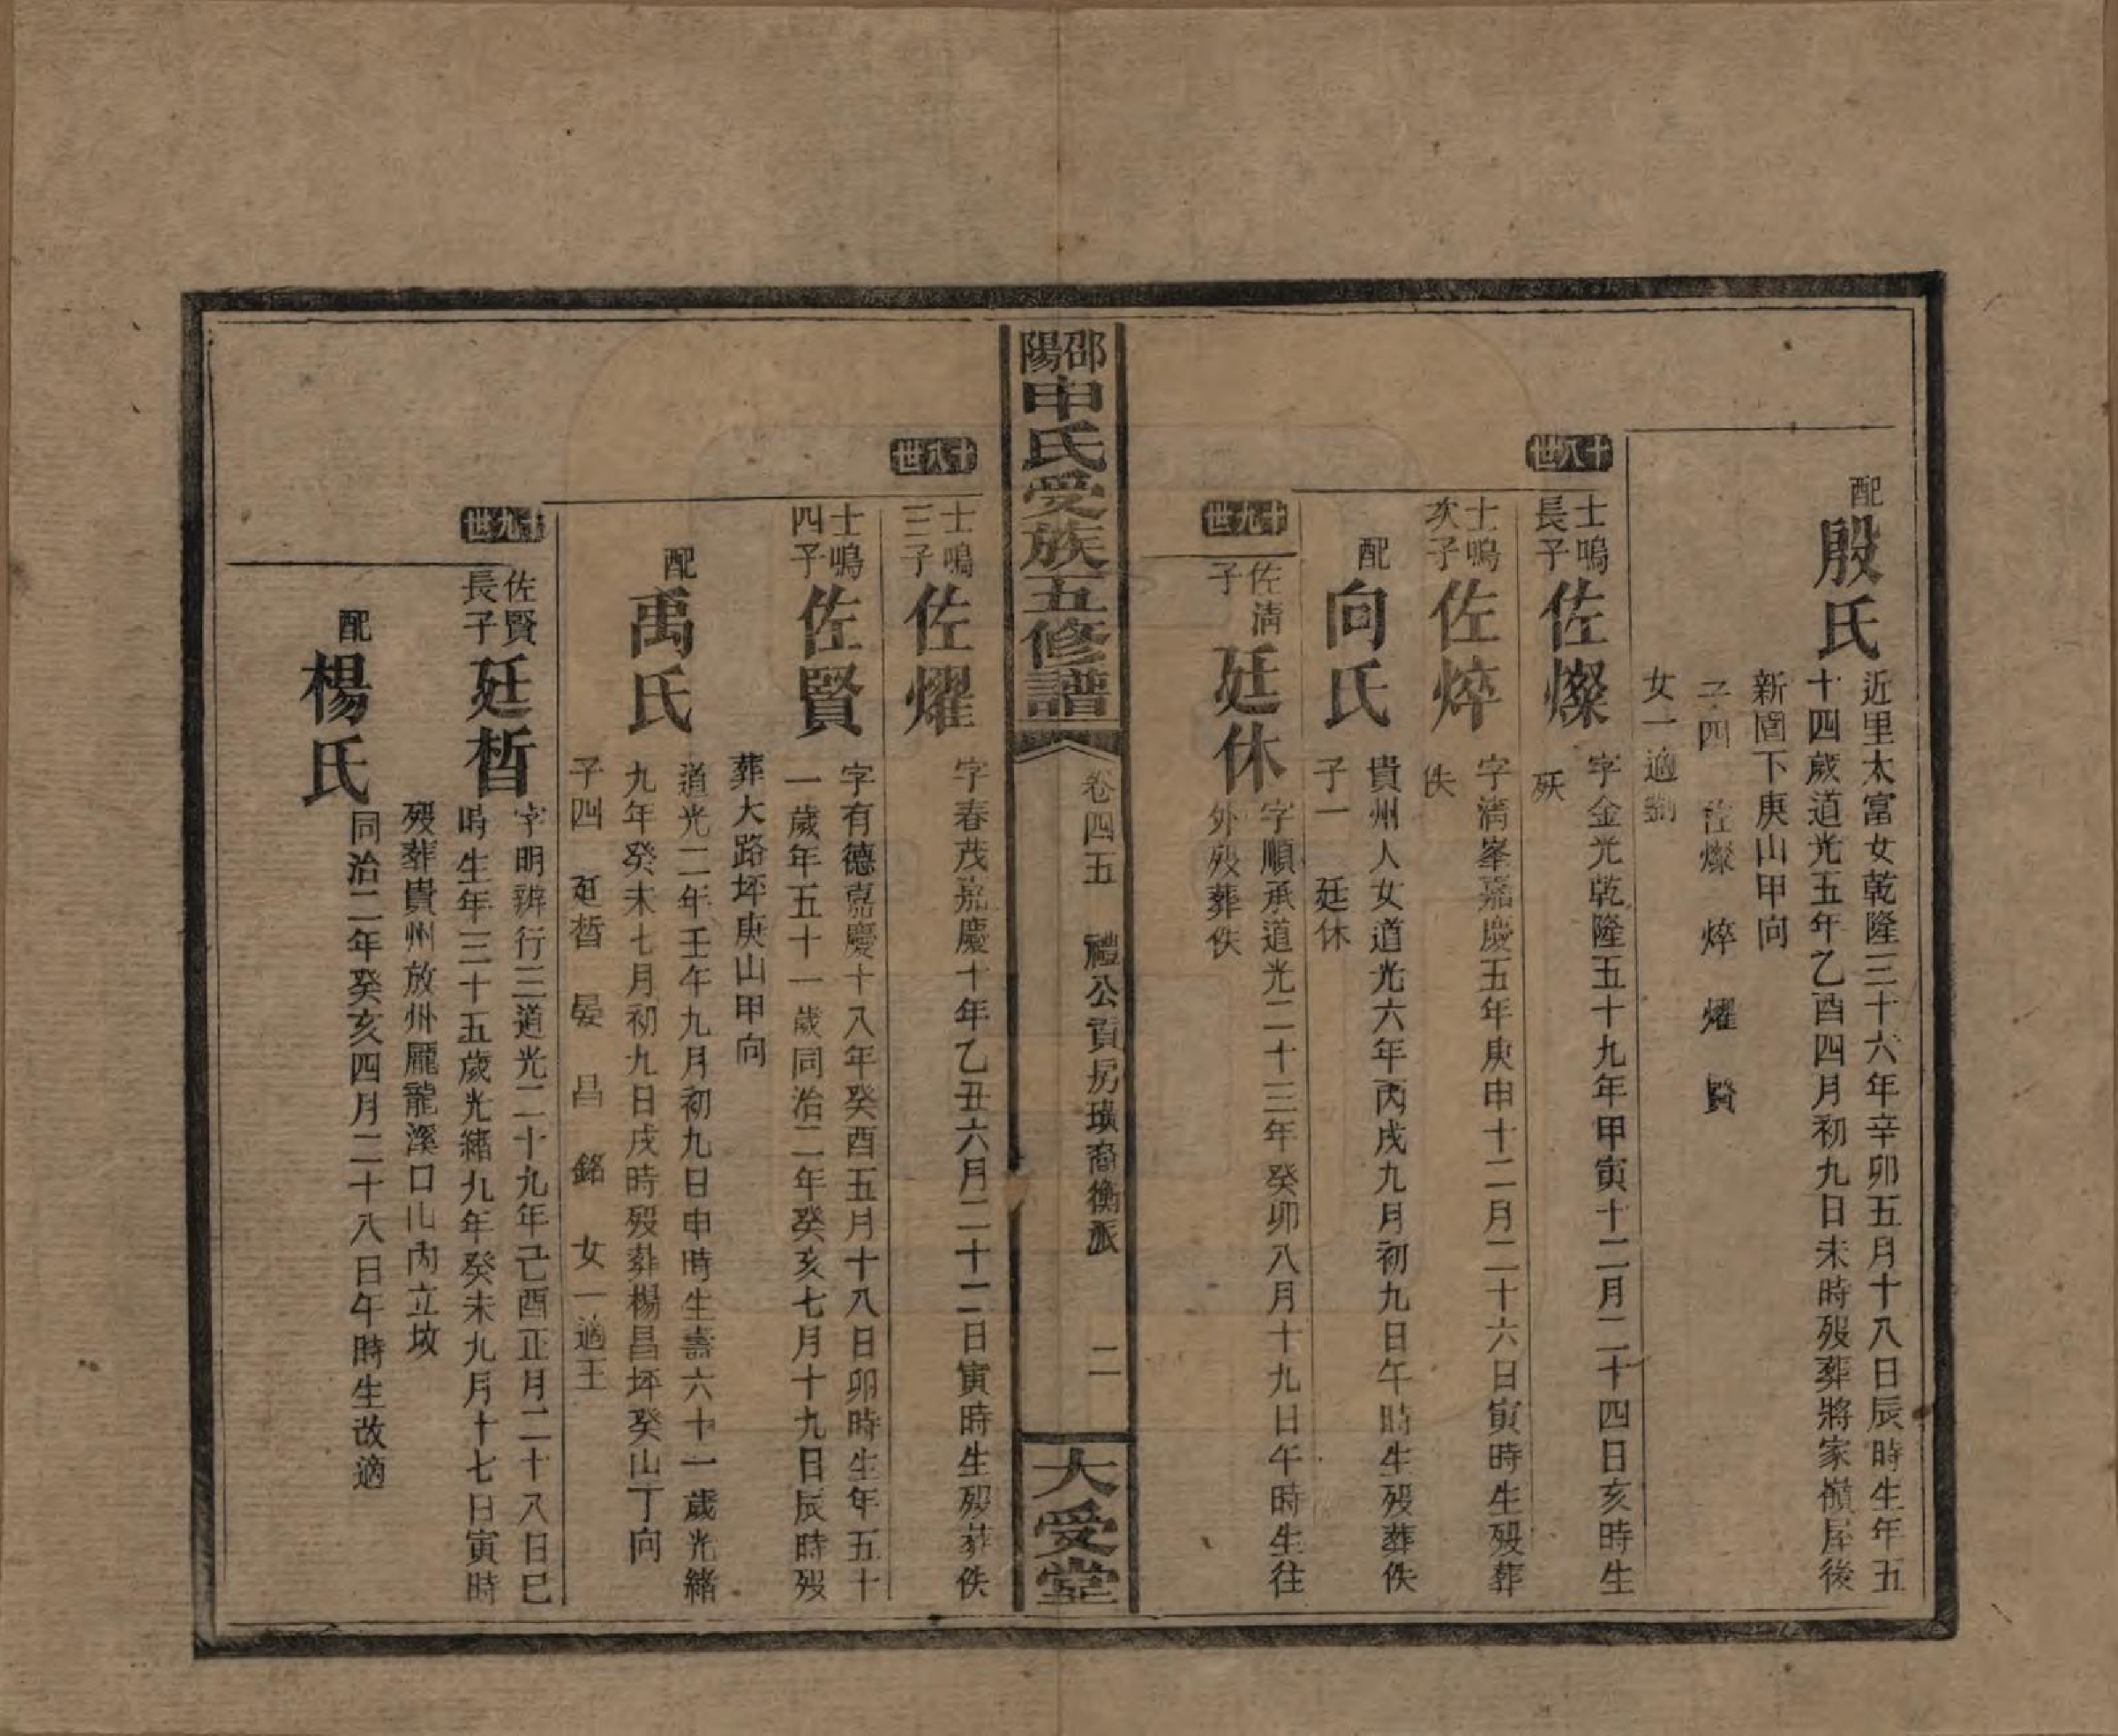 配
殷氏
近里太富女乾隆三十六年辛卯五月十八日辰時生年五
十四歲道光五年乙酉四月初九日未時歿葬將家嶺屋後
新圍下庚山甲向
子四　佐燦　焠　燿　賢
女一適劉
十八世
士鳴
長子
佐燦
字金光乾隆五十九年甲寅十二月二十四日亥時生
殀
士鳴
次子
佐焠
字清峯嘉慶五年庚申十二月二十六日寅時生歿葬
佚
配
向氏
貴州人女道光六年丙戌九月初九日午時生歿葬佚
子一　廷休
十九世
佐清
子
廷休
字順承道光二十三年癸卯八月十九日午時生往
外歿葬佚
邵陽申氏受族五修譜
卷四五　禮公貢房璜裔衡派　二
大受堂
十八世
士鳴
三子
佐燿
字春茂嘉慶十年乙丑六月二十二日寅時生歿葬佚
士鳴
四子
佐賢
字有德嘉慶十八年癸酉五月十八日卯時生年五十
一歲年五十一歲同治二年癸亥七月十九日辰時歿
葬大路坪庚山甲向
配
禹氏
道光二年壬午九月初九日申時生壽六十一歲光緒
九年癸未七月初九日戌時歿葬楊昌坪癸山丁向
子四　廷晳　晏　昌　銘　女一適王
十九世
佐賢
長子
廷晳
字明辨行三道光二十九年己酉正月二十八日巳
時生年三十五歲光緒九年癸未九月十七日寅時
歿葬貴州放州龎龍溪口山內立坟
配
楊氏
同治二年癸亥四月二十八日午時生改適